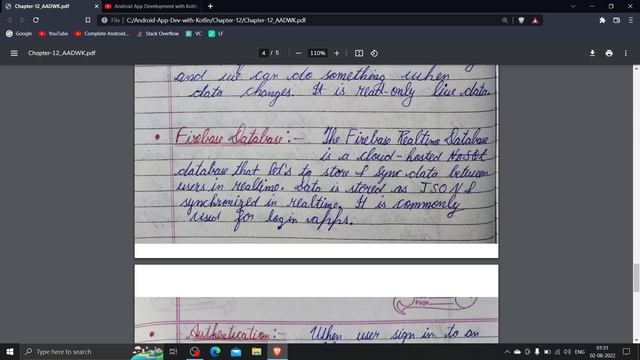 Chapter-12_AADWK.pdf
Android App Development with Kotl
File
C:/Android-App-Dev-with-Kotlin/Chapter-12/Chapter-12_AADWK.pdf
Google
YouTube
Complete Android...
Stack Overflow
VC
LF
Chapter-12_AADWK.pdf
4 / 5
110%
and we can do something when
data changes. It is read-only live data
• Firebase Database :- The Firebase Realtime Database
is a cloud-hosted NoSQL
database that let's to store & sync data between
users in realtime. Data is stored as JSON &
synchronized in realtime. It is commonly
used for login apps.
Page
• Authentication :- When user sign in to an
Type here to search
ENG
01:31
02-08-2022